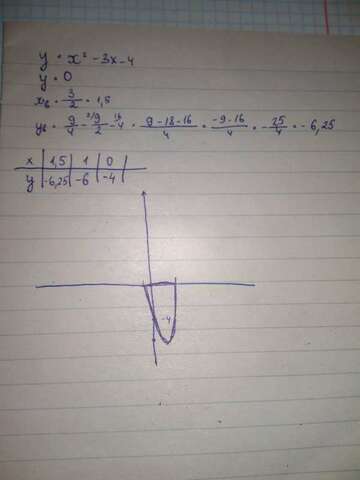 y = x² - 3x - 4
y = 0
xв = 3/2 = 1,5
yв = 9/4 - ²⁾9/2 - ⁴⁾4 = 9-18-16/4 = -9-16/4 = -25/4 = -6,25
x | 1,5 | 1 | 0 |
y | -6,25 | -6 | -4 |
-4